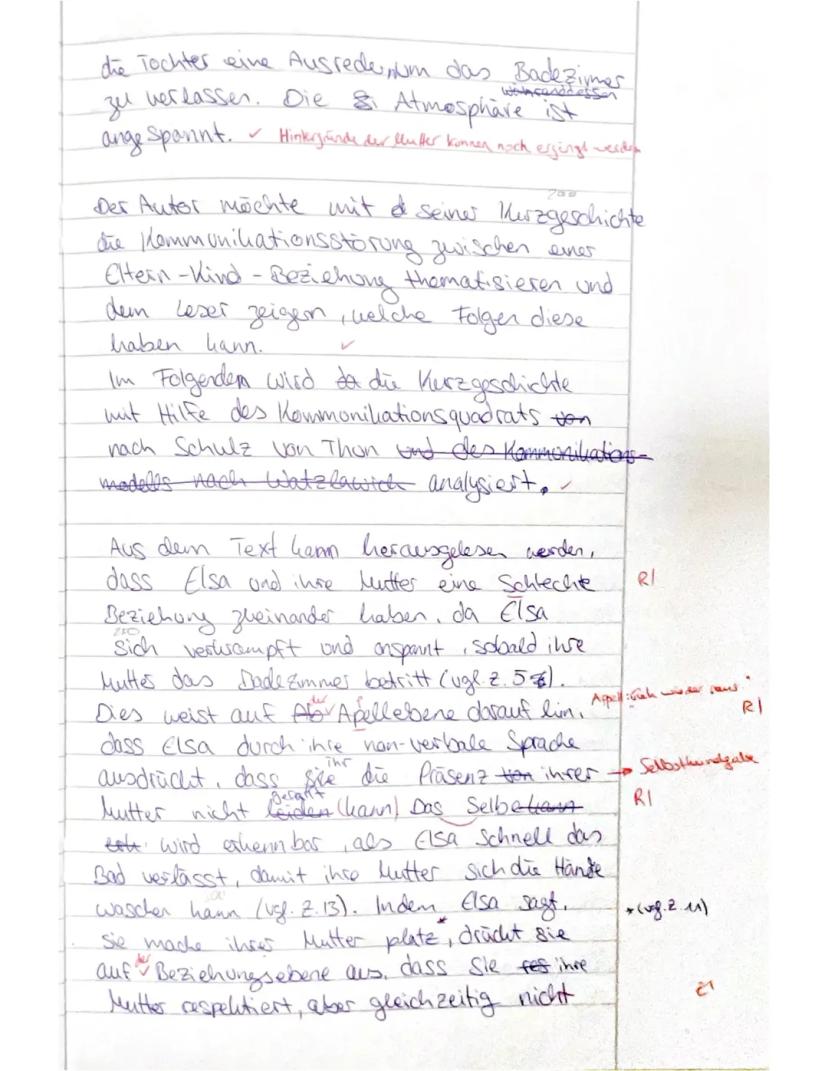 die Tochter eine Ausrede, um das Badezimmer
zu verlassen. Die Atmosphäre ist
angespannt. ✓ Hintergründe der Mutter können noch ergänzt werden
Der Autor möchte mit seiner Kurzgeschichte
die Kommunikationsstörung zwischen einer
Eltern-Kind-Beziehung thematisieren und
dem Leser zeigen, welche Folgen diese
haben kann. ✓
Im Folgenden wird die Kurzgeschichte
mit Hilfe des Kommunikationsquadrats von
nach Schulz von Thun und des Kommunikations-
modells nach Watzlawick analysiert. ✓
Aus dem Text kann herausgelesen werden,
dass Elsa und ihre Mutter eine Schlechte R|
Beziehung zueinander haben, da Elsa
sich verkrampft und anspannt, sobald ihre
Mutter das Badezimmer betritt (vgl. z. 5).
Appell: Geh wieder raus"
Dies weist auf der Apellebene darauf hin, R|
dass Elsa durch ihre non-verbale Sprache
ausdrückt, dass ihr die Präsenz von ihrer → Selbstkundgabe
Mutter nicht leiden (kann) Das Selbe R|
wird erkennbar, als Elsa Schnell das
Bad verlässt, damit ihre Mutter sich die Hände
waschen kann (vgl. z. 13). Indem Elsa sagt, *(vgl. z. 11)
sie mache ihrer Mutter platz*, drückt sie
auf der Beziehungsebene aus, dass Sie ihre
Mutter respektiert, aber gleichzeitig nicht